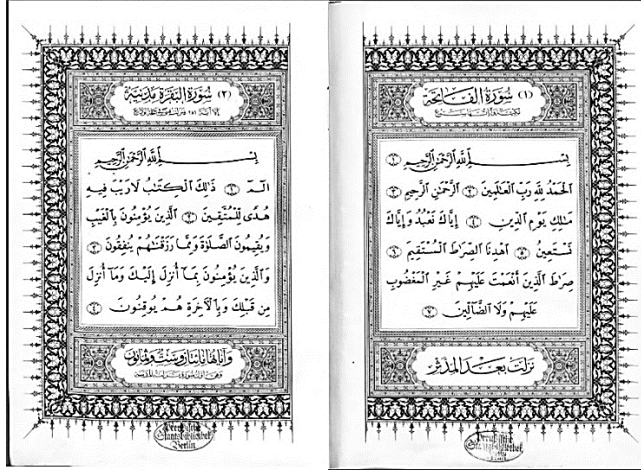 (١) سُورَةُ الفَاتِحَةِ
مكية وآياتها سبع
بِسْمِ ٱللَّهِ ٱلرَّحْمَٰنِ ٱلرَّحِيمِ ١
ٱلْحَمْدُ لِلَّهِ رَبِّ ٱلْعَٰلَمِينَ ٢ ٱلرَّحْمَٰنِ ٱلرَّحِيمِ ٣
مَٰلِكِ يَوْمِ ٱلدِّينِ ٤ إِيَّاكَ نَعْبُدُ وَإِيَّاكَ
نَسْتَعِينُ ٥ ٱهْدِنَا ٱلصِّرَٰطَ ٱلْمُسْتَقِيمَ ٦
صِرَٰطَ ٱلَّذِينَ أَنْعَمْتَ عَلَيْهِمْ غَيْرِ ٱلْمَغْضُوبِ
عَلَيْهِمْ وَلَا ٱلضَّآلِّينَ ٧
نزلت بعد المدثر
Preußische
Staatsbibliothek
Berlin
(٢) سُورَةُ البَقَرَةِ مَدَنِيَّة
إلا آية ٢٨١ فنزلت بمنى في حجة الوداع
بِسْمِ ٱللَّهِ ٱلرَّحْمَٰنِ ٱلرَّحِيمِ
الٓمٓ ١ ذَٰلِكَ ٱلْكِتَٰبُ لَا رَيْبَ فِيهِ
هُدًى لِّلْمُتَّقِينَ ٢ ٱلَّذِينَ يُؤْمِنُونَ بِٱلْغَيْبِ
وَيُقِيمُونَ ٱلصَّلَوٰةَ وَمِمَّا رَزَقْنَٰهُمْ يُنفِقُونَ ٣
وَٱلَّذِينَ يُؤْمِنُونَ بِمَآ أُنزِلَ إِلَيْكَ وَمَآ أُنزِلَ
مِن قَبْلِكَ وَبِٱلْأَخِرَةِ هُمْ يُوقِنُونَ ٤
وآياتها مائتان وست وثمانون
وهي أول سورة نزلت بالمدينة
Preußische
Staatsbibliothek
Berlin